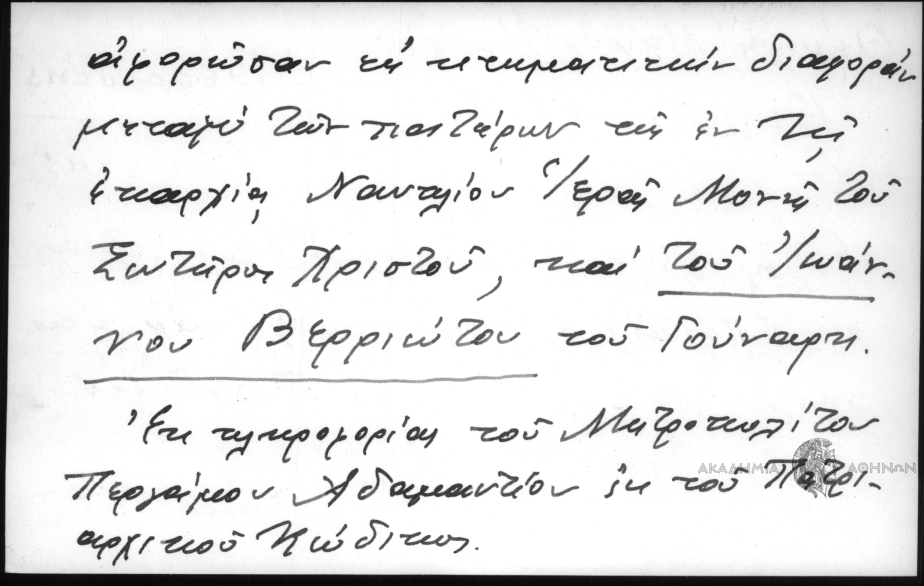 ἀφορῶσαν τὴν κτηματικήν διαφοράν
μεταξύ τῶν πατέρων τῆς ἐν τῇ
ἐπαρχίᾳ Ναυπλίου Ἱερᾶς Μονῆς τοῦ
Σωτῆρος Χριστοῦ, καί τοῦ Ἰωάν-
νου Βερριώτου τοῦ Γούναρη.
Ἐκ πληροφορίας τοῦ Μητροπολίτου
Περγάμου Ἀδαμαντίου ἐκ τοῦ Πατρι-
αρχικοῦ Κώδικος.
ΑΚΑΔΗΜΙΑ ΑΘΗΝΩΝ